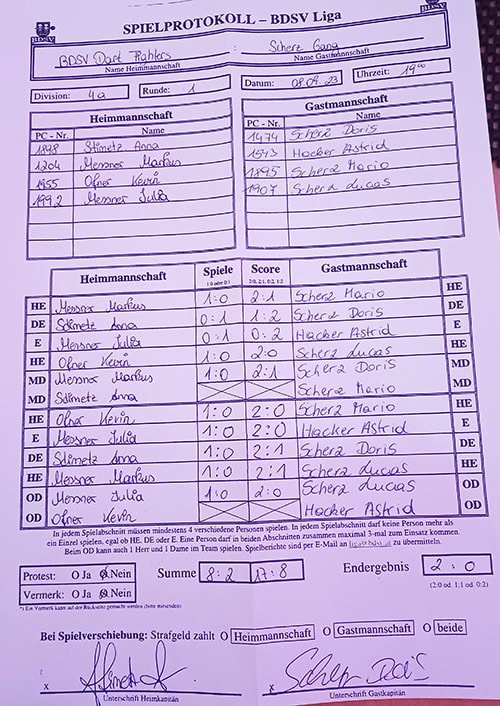 BDSV
SPIELPROTOKOLL – BDSV Liga
BDSV
BDSV Dart Fighters : Scherz Gang
Name Heimmannschaft Name Gastmannschaft
Division: 4a Runde: 1 Datum: 08.09.23 Uhrzeit: 19 00
Heimmannschaft Gastmannschaft
PC - Nr. Name PC - Nr. Name
1898 Stimetz Anna 1474 Scherz Doris
1204 Messner Markus 1543 Hacker Astrid
1955 Ofner Kevin 1895 Scherz Mario
1992 Messner Julia 1907 Scherz Lucas
Heimmannschaft Spiele 1:0 oder 0:1 Score 2:0, 2:1, 0:2, 1:2 Gastmannschaft
HE Messner Markus 1:0 2:1 Scherz Mario HE
DE Stimetz Anna 0:1 1:2 Scherz Doris DE
E Messner Julia 0:1 0:2 Hacker Astrid E
HE Ofner Kevin 1:0 2:0 Scherz Lucas HE
MD Messner Markus 1:0 2:1 Scherz Doris MD
MD Stimetz Anna Scherz Mario MD
HE Ofner Kevin 1:0 2:0 Scherz Mario HE
E Messner Julia 1:0 2:0 Hacker Astrid E
DE Stimetz Anna 1:0 2:1 Scherz Doris DE
HE Messner Markus 1:0 2:1 Scherz Lucas HE
OD Messner Julia 1:0 2:0 Scherz Lucas OD
OD Ofner Kevin Hacker Astrid OD
In jedem Spielabschnitt müssen mindestens 4 verschiedene Personen spielen. In jedem Spielabschnitt darf keine Person mehr als
ein Einzel spielen, egal ob HE, DE oder E. Eine Person darf in beiden Abschnitten zusammen maximal 3-mal zum Einsatz kommen.
Beim OD kann auch 1 Herr und 1 Dame im Team spielen. Spielberichte sind per E-Mail an zu übermitteln.
Protest: O Ja O Nein Summe 8:2 17:8 Endergebnis 2:0
Vermerk: O Ja O Nein (2:0 od. 1:1 od. 0:2)
*) Ein Vermerk kann auf der Rückseite gemacht werden (bitte mitsenden)
Bei Spielverschiebung: Strafgeld zahlt O Heimmannschaft O Gastmannschaft O beide
x Stimetz A x Scherz Doris
Unterschrift Heimkapitän Unterschrift Gastkapitän